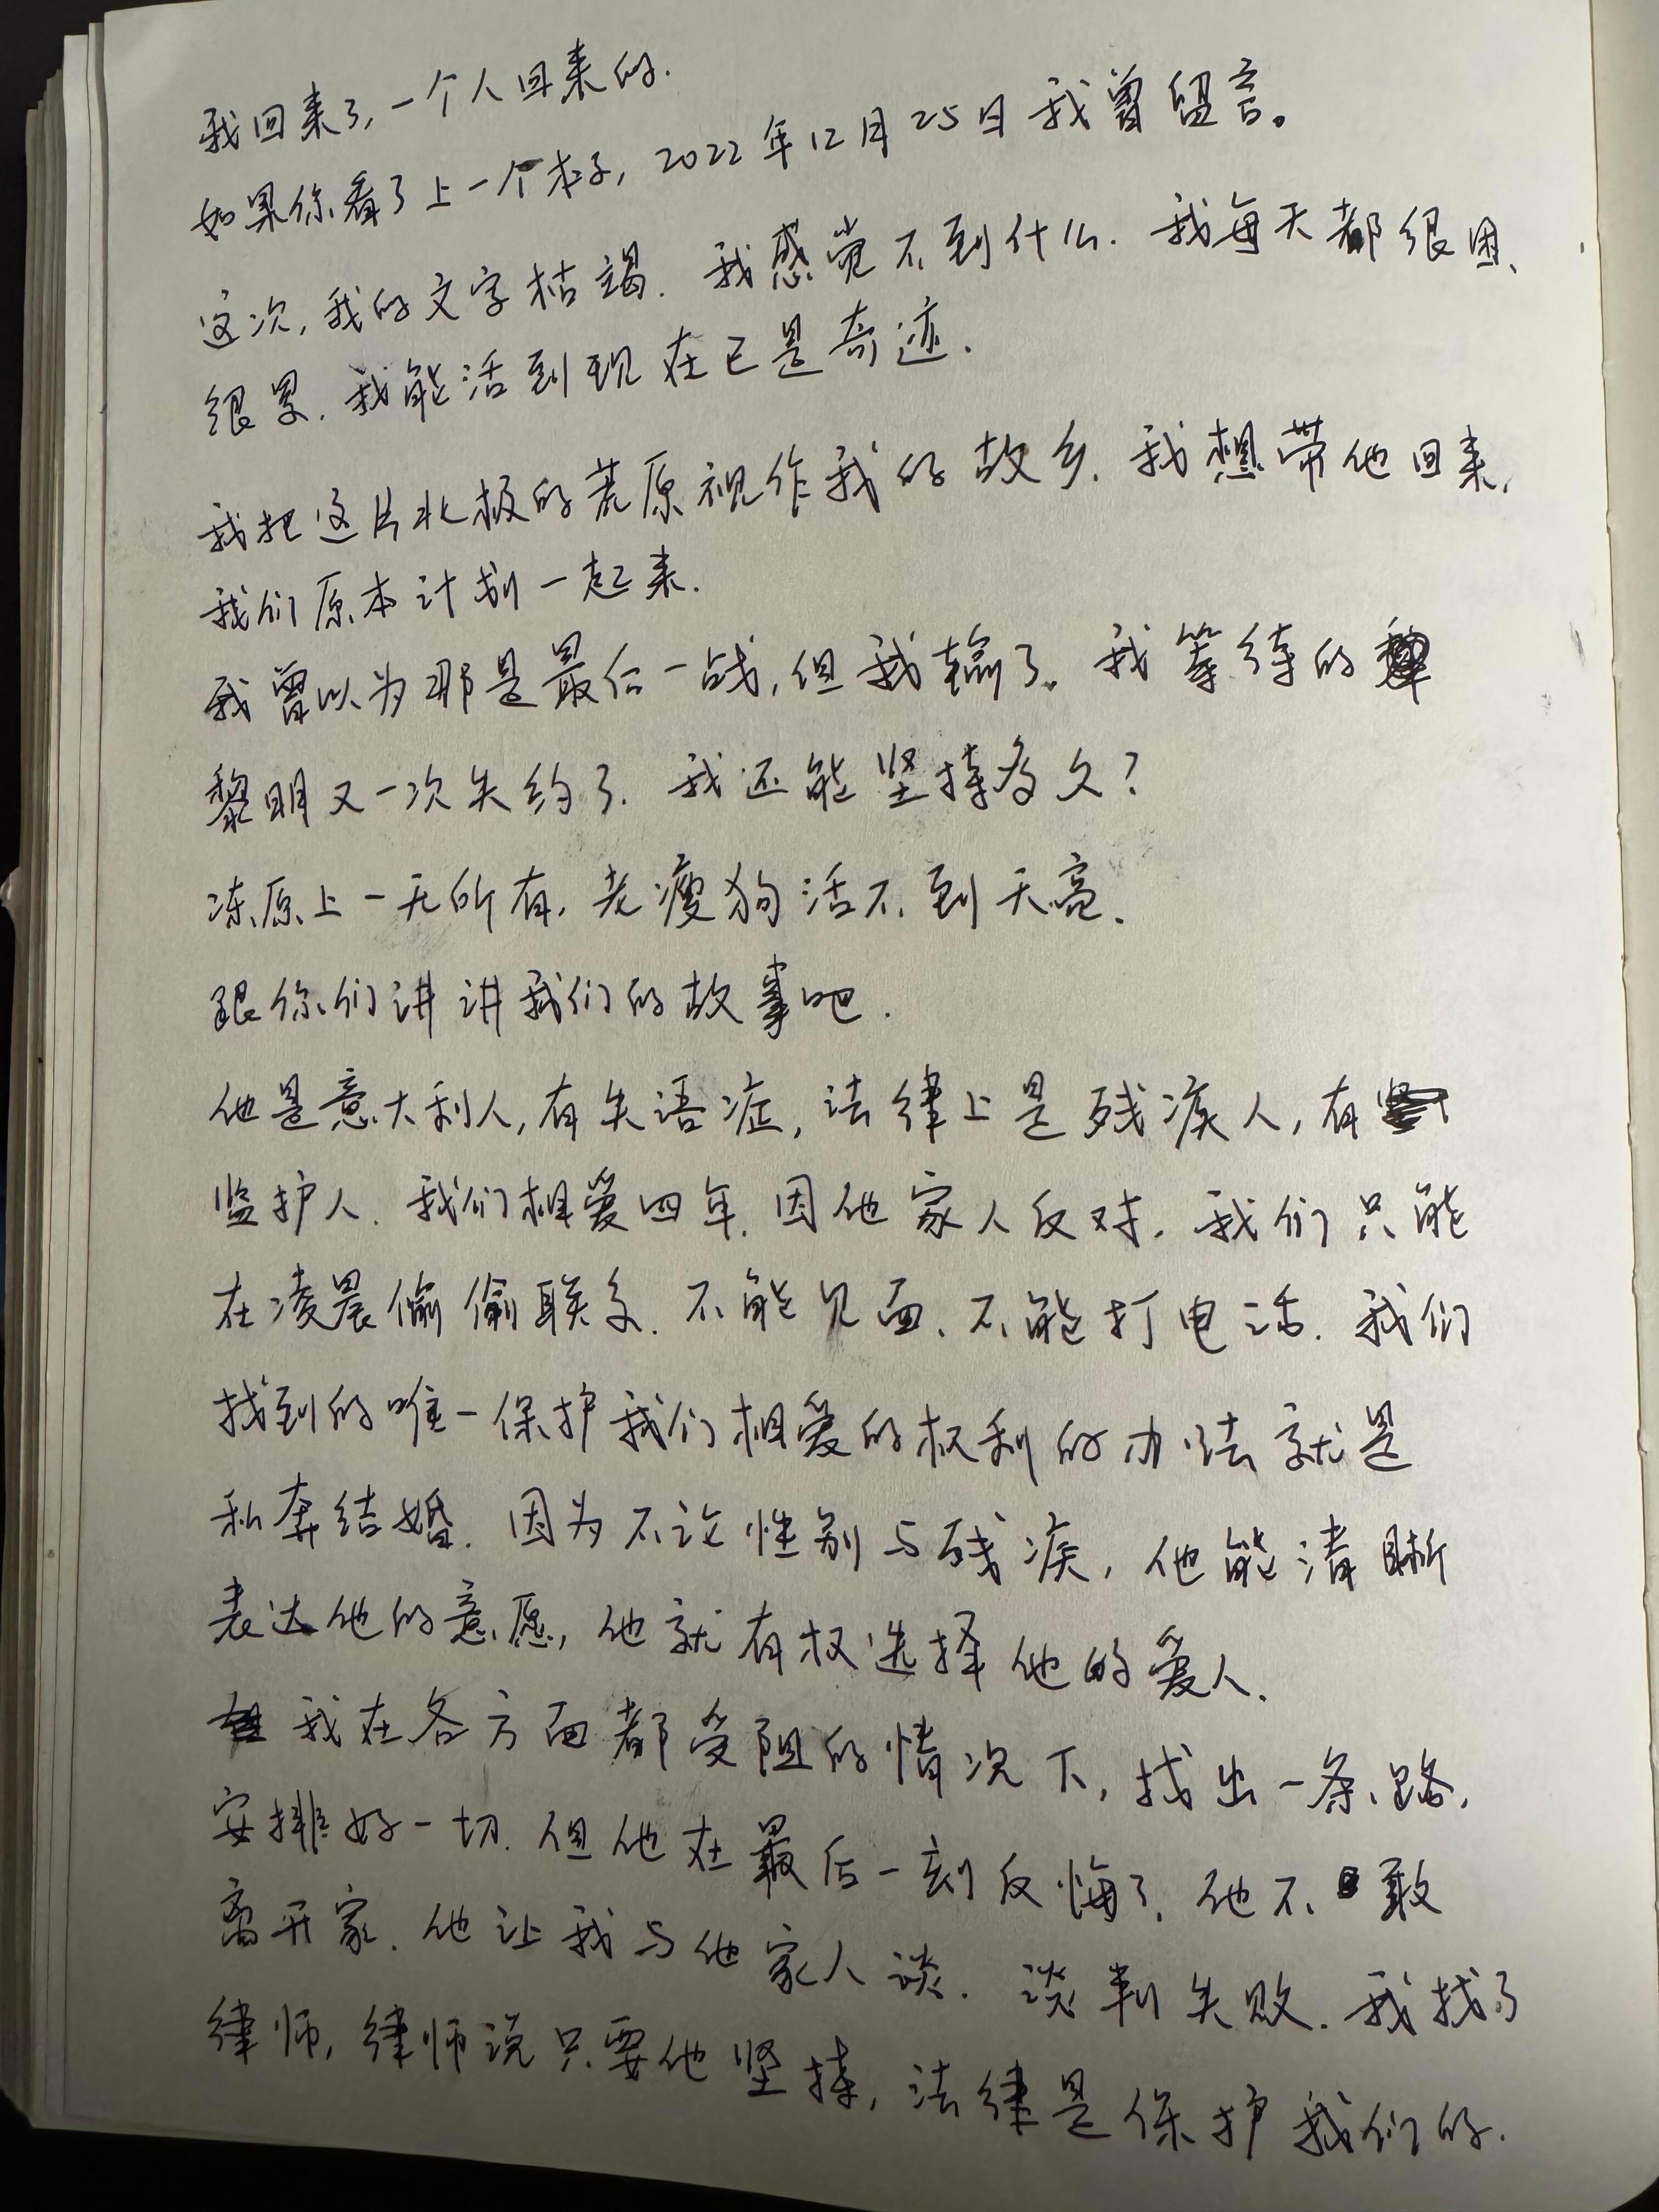 我回来了,一个人回来的.
如果你看了上一个本子,2022年12月25日我曾留言。
这次,我的文字枯竭.我感觉不到什么.我每天都很困、
很累.我能活到现在已是奇迹.
我把这片北极的荒原视作我的故乡.我想带他回来,
我们原本计划一起来.
我曾以为那是最后一战,但我输了。我等待的
黎明又一次失约了.我还能坚持多久?
冻原上一无所有,老瘦狗活不到天亮.
跟你们讲讲我们的故事吧.
他是意大利人,有失语症,法律上是残疾人,有
监护人.我们相爱四年.因他家人反对,我们只能
在凌晨偷偷联系.不能见面、不能打电话.我们
找到的唯一保护我们相爱的权利的办法就是
私奔结婚.因为不论性别与残疾,他能清晰
表达他的意愿,他就有权选择他的爱人.
我在各方面都受阻的情况下,找出一条路,
安排好一切.但他在最后一刻反悔了,他不敢
离开家.他让我与他家人谈.谈判失败.我找了
律师,律师说只要他坚持,法律是保护我们的.